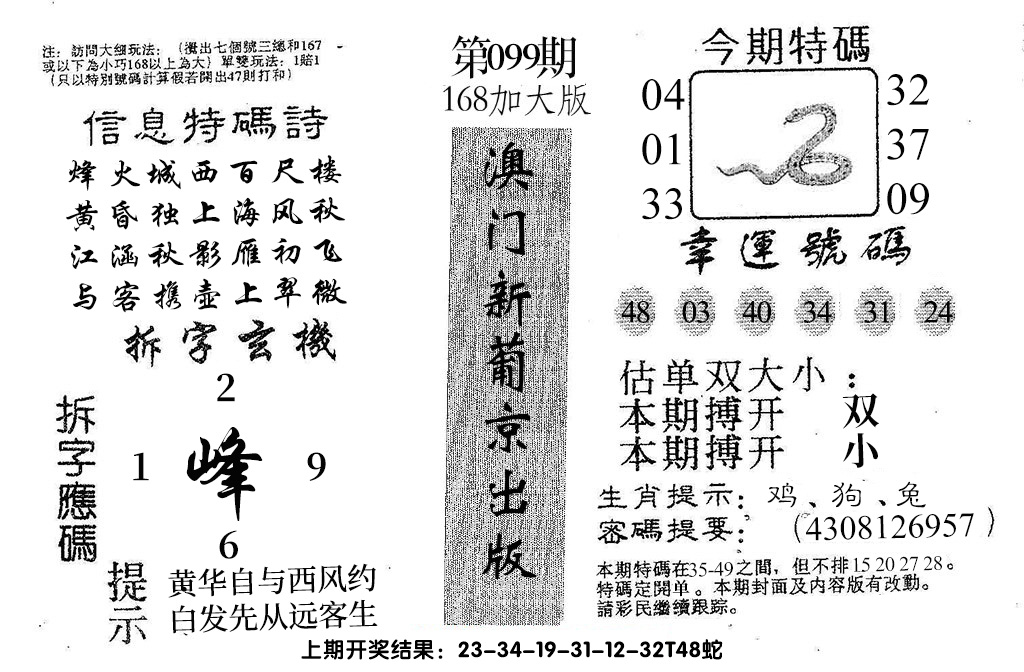 注：訪問大细玩法：(攪出七個號三總和167
或以下為小巧168以上為大) 單雙玩法：1賠1
(只以特別號碼計算假若開出47則打和)
信息特碼詩
烽火城西百尺楼
黄昏独上海风秋
江涵秋影雁初飞
与客携壶上翠微
拆字玄機
拆字應碼
2
1 峰 9
6
提示
黄华自与西风约
白发先从远客生
第099期
168加大版
澳门新葡京出版
今期特碼
04 32
01 37
33 09
幸運號碼
48 03 40 34 31 24
估单双大小：
本期搏开 双
本期搏开 小
生肖提示：鸡、狗、兔
密碼提要：(4308126957)
本期特碼在35-49之間，但不排15 20 27 28。
特碼定開单。本期封面及内容版有改動。
請彩民繼續跟踪。
上期开奖结果：23-34-19-31-12-32T48蛇